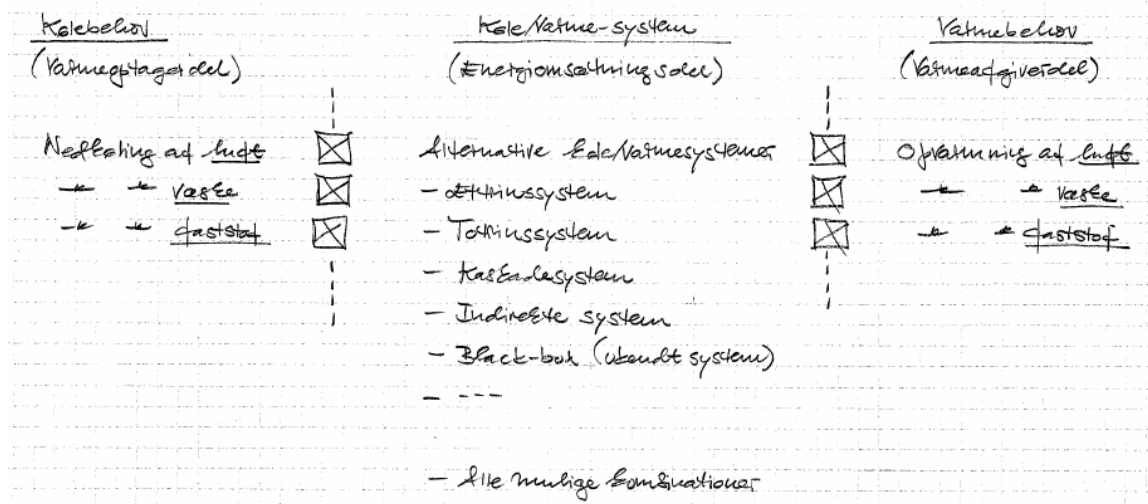 Kølebehov
(Varmeoptagerdel)
Nedkøling af luft
-"- -"- væske
-"- -"- faststof
Køle/Varme-system
(Energiomsætningsdel)
Alternative køle/varmesystemer
- Ettrinssystem
- Totrinssystem
- Kaskadesystem
- Indirekte system
- Black-box (ukendt system)
- ---
- Alle mulige kombinationer
Varmebehov
(Varmeafgiverdel)
Opvarmning af luft
-"- -"- væske
-"- -"- faststof